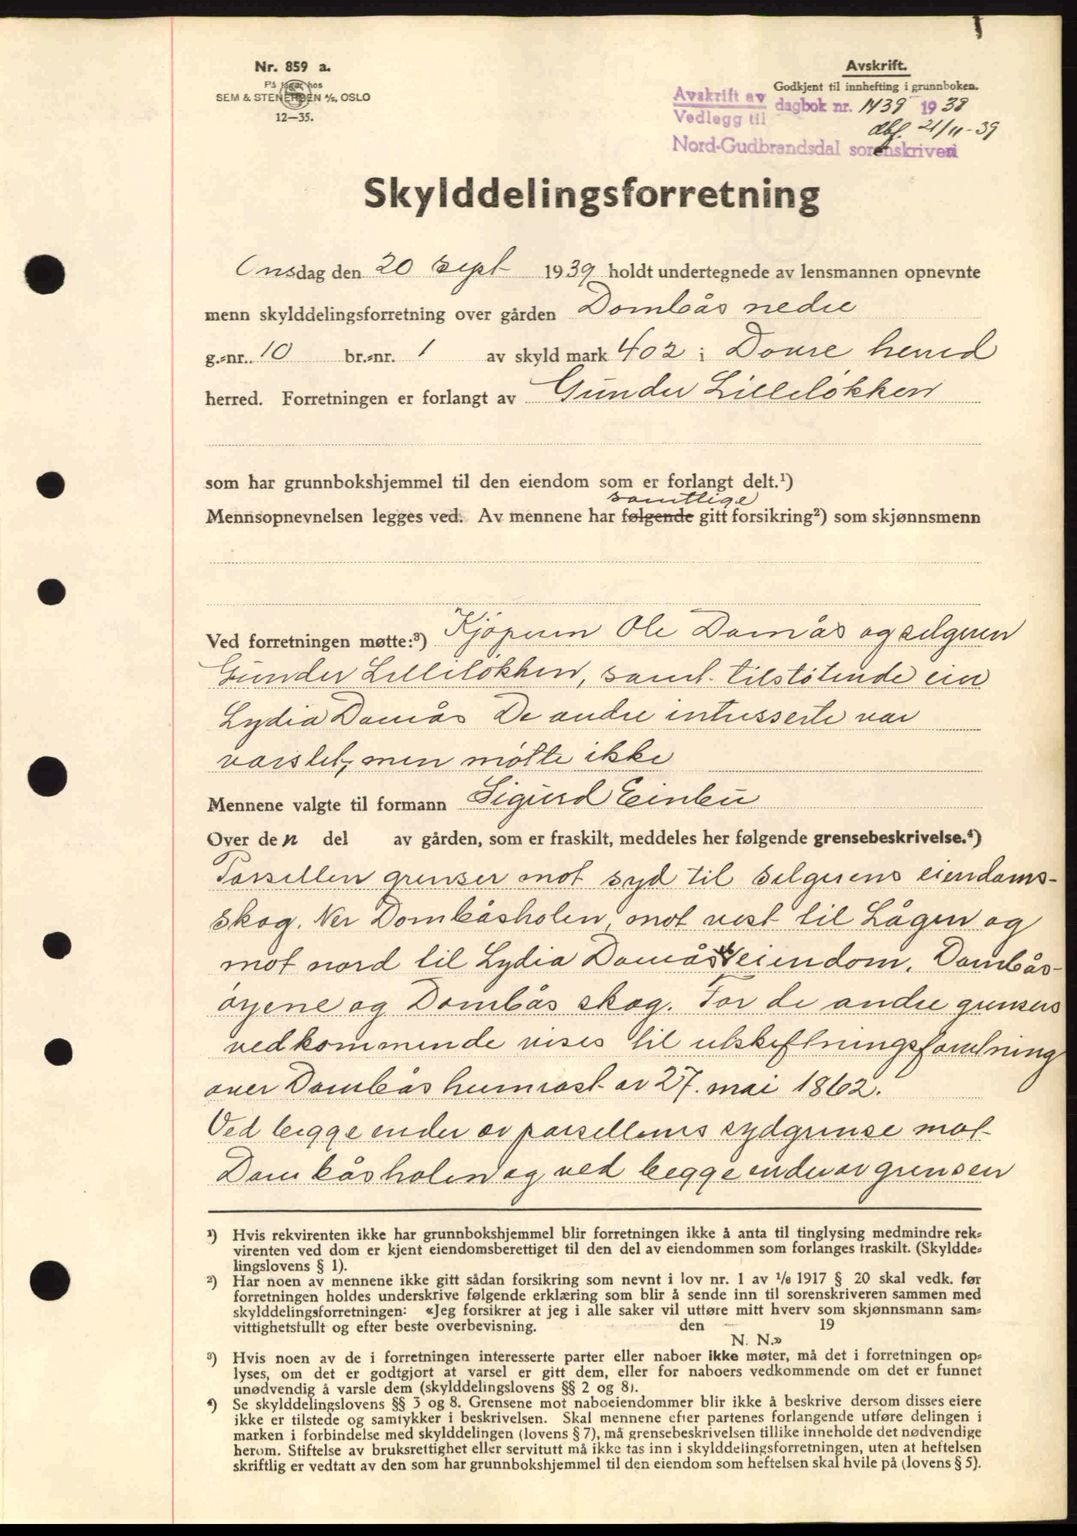 Nr. 859 a.
På lager hos
SEM & STENERSEN A/S, OSLO
12—35.
Avskrift.
Godkjent til innhefting i grunnboken.
Avskrift av dagbok nr. 1439 1938
Vedlegg til
dbf. 21/11-39
Nord-Gudbrandsdal sorenskriveri
Skylddelingsforretning
Onsdag den 20 sept 1939 holdt undertegnede av lensmannen opnevnte
menn skylddelingsforretning over gården Dombås nedre
g.-nr. 10 br.-nr. 1 av skyld mark 402 i Dovre herred
herred. Forretningen er forlangt av Gunder Lilleløkken
som har grunnbokshjemmel til den eiendom som er forlangt delt.¹)
samtlige
Mennsopnevnelsen legges ved. Av mennene har følgende gitt forsikring²) som skjønnsmenn
Ved forretningen møtte:³) Kjøperen Ole Domås og selgeren
Gunder Lilleløkken, samt tilstøtende eier
Lydia Domås De andre intresserte var
varslet, men møtte ikke
Mennene valgte til formann Sigurd Einbu
Over den del av gården, som er fraskilt, meddeles her følgende grensebeskrivelse.⁴)
Parsellen grenser mot syd til selgerens eiendoms-
skog. Ner Dombåsholen, mot vest til Lågen og
mot nord til Lydia Domås eiendom, Dombås-
øyene og Dombås skog. For de andre grensers
vedkommende vises til utskiftningsforretning
over Dombås humrast av 27. mai 1862.
Ved begge ender av parsellens sydgrense mot
Dombåsholen og ved begge ender av grensen
¹) Hvis rekvirenten ikke har grunnbokshjemmel blir forretningen ikke å anta til tinglysing medmindre rek-
virenten ved dom er kjent eiendomsberettiget til den del av eiendommen som forlanges fraskilt. (Skyldde-
lingslovens § 1).
²) Har noen av mennene ikke gitt sådan forsikring som nevnt i lov nr. 1 av 1/6 1917 § 20 skal vedk. før
forretningen holdes underskrive følgende erklæring som blir å sende inn til sorenskriveren sammen med
skylddelingsforretningen: «Jeg forsikrer at jeg i alle saker vil utføre mitt hverv som skjønnsmann sam-
vittighetsfullt og efter beste overbevisning. den 19
N. N.»
³) Hvis noen av de i forretningen interesserte parter eller naboer ikke møter, må det i forretningen op-
lyses, om det er godtgjort at varsel er gitt dem, eller for naboers vedkommende om det er funnet
unødvendig å varsle dem (skylddelingslovens §§ 2 og 8).
⁴) Se skylddelingslovens §§ 3 og 8. Grensene mot naboeiendommer blir ikke å beskrive dersom disses eiere
ikke er tilstede og samtykker i beskrivelsen. Skal mennene efter partenes forlangende utføre delingen i
marken i forbindelse med skylddelingen (lovens § 7), må grensebeskrivelsen tillike inneholde det nødvendige
herom. Stiftelse av bruksrettighet eller servitutt må ikke tas inn i skylddelingsforretningen, uten at heftelsen
skriftlig er vedtatt av den som har grunnbokshjemmel til den eiendom som heftelsen skal hvile på (lovens § 5).